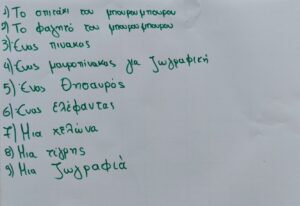 1) Το σπιτάκι του μπουρουμπουρου
2) Το φαγητό του μπουρουμπουρου
3) Ένας πινακας
4) Ένας μαυροπίνακας για ζωγραφική
5) Ένας Θησαυρός
6) Ένας ελέφαντας
7) Μια χελώνα
8) Μια τίγρης
9) Μια ζωγραφιά